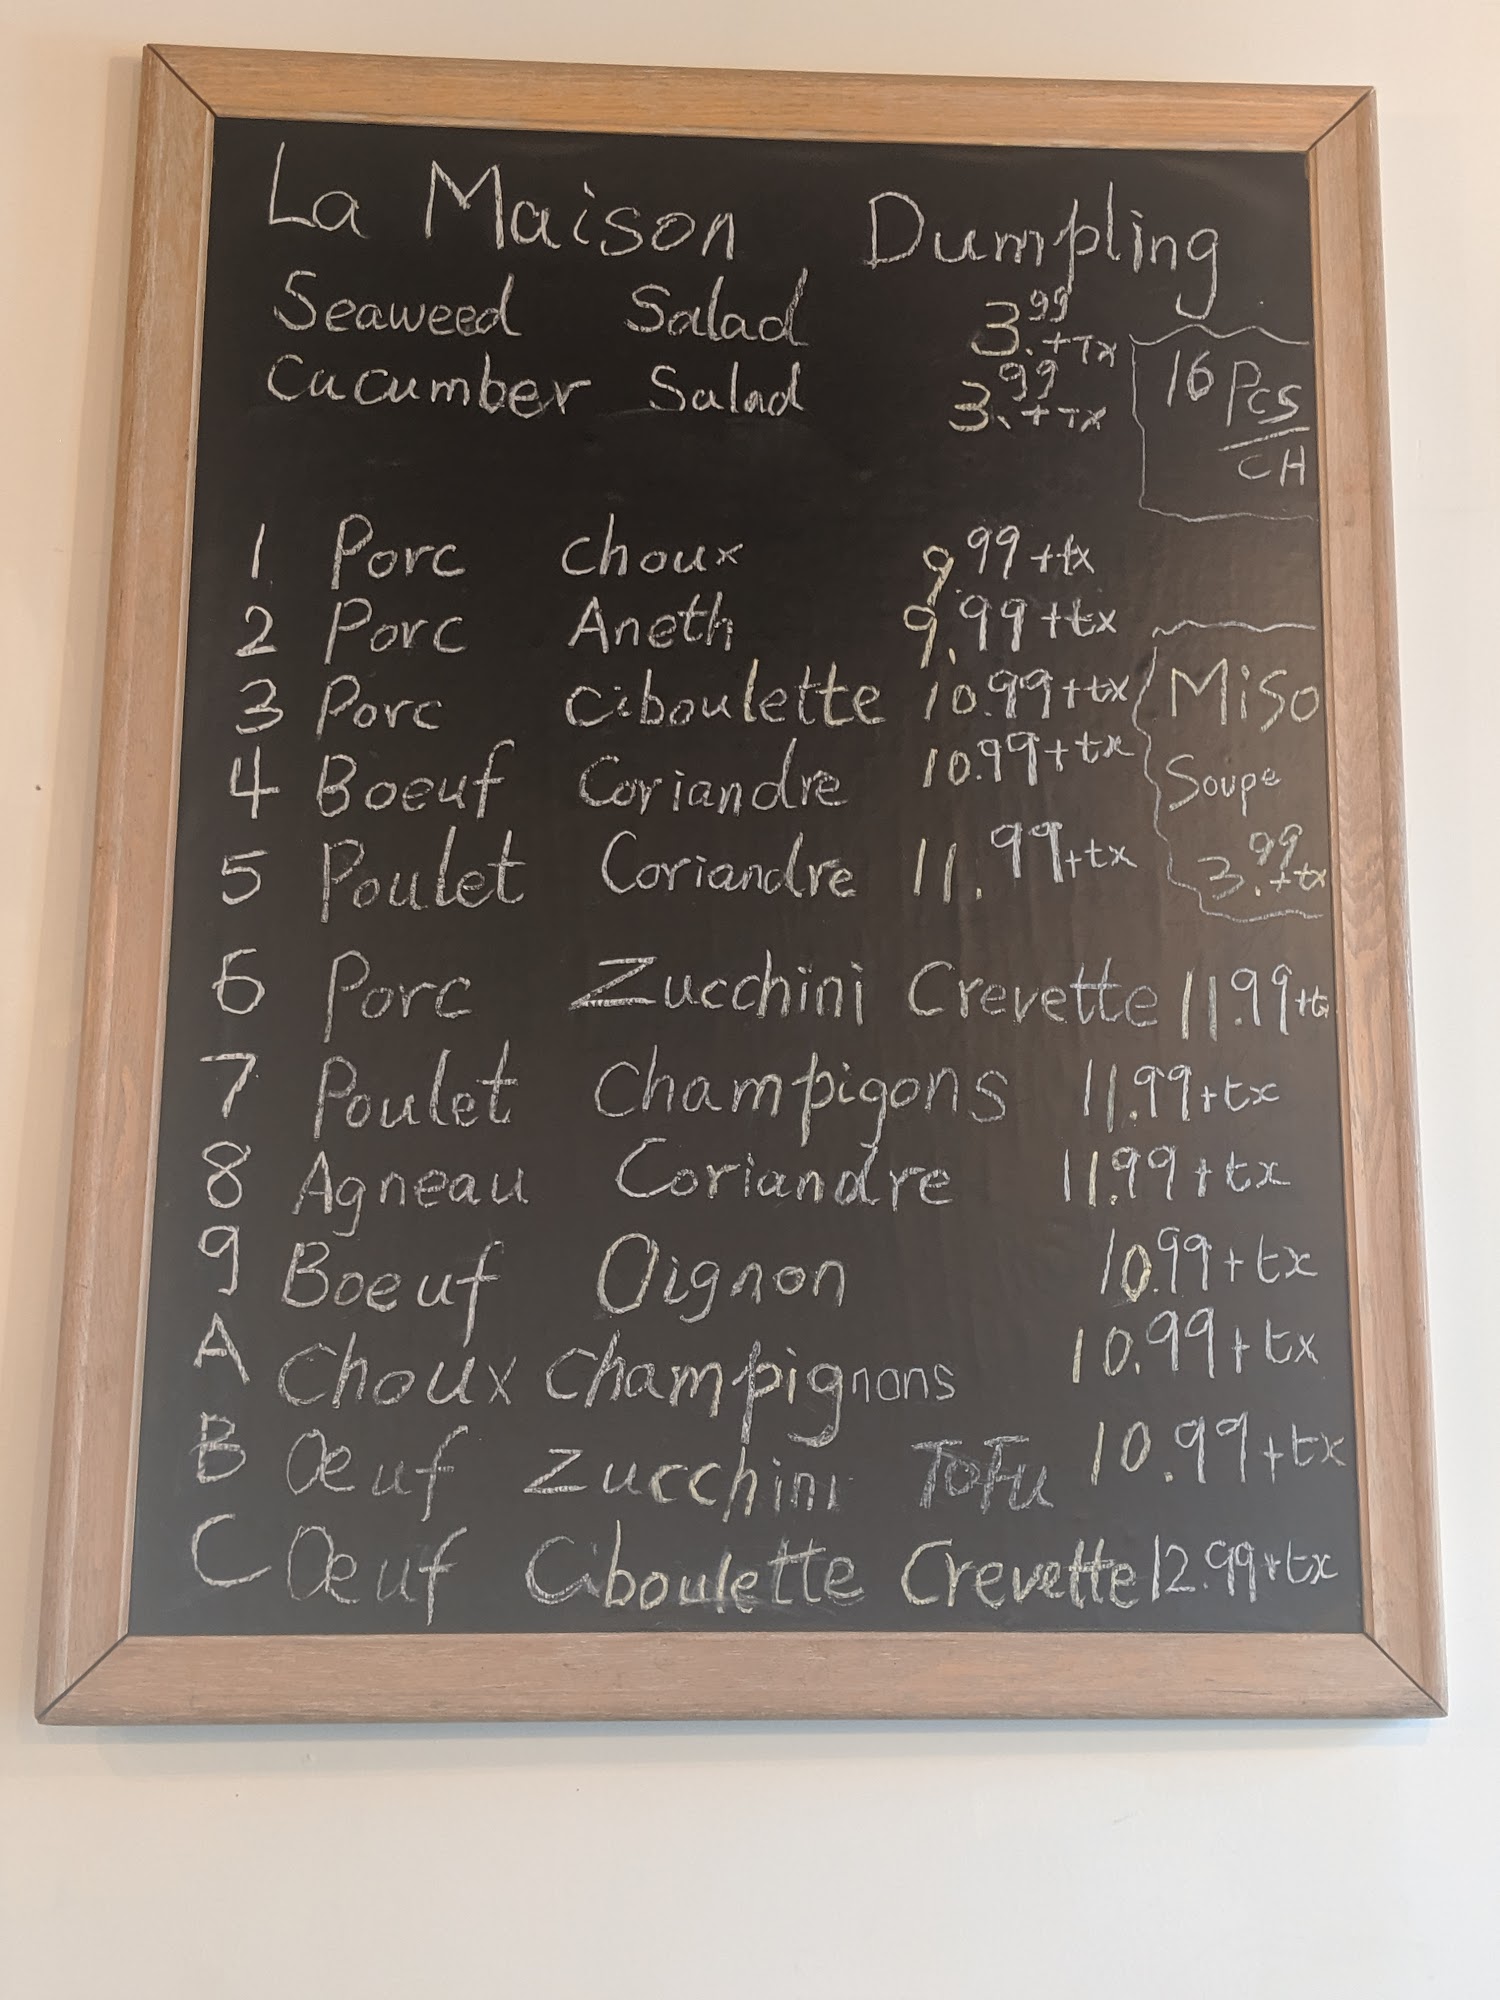 La Maison Dumpling
Seaweed Salad 3.99+Tx
Cucumber Salad 3.99+Tx
16 Pcs
CH
1 Porc Choux 9.99+tx
2 Porc Aneth 9.99+tx
3 Porc Ciboulette 10.99+tx
4 Boeuf Coriandre 10.99+tx
5 Poulet Coriandre 11.99+tx
MiSo
Soupe
3.99+tx
6 Porc Zucchini Crevette 11.99+tx
7 Poulet Champigons 11.99+tx
8 Agneau Coriandre 11.99+tx
9 Boeuf Oignon 10.99+tx
A Choux Champignons 10.99+tx
B Œuf Zucchini ToFu 10.99+tx
C Œuf Ciboulette Crevette 12.99+tx